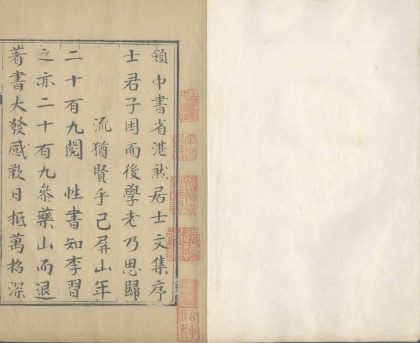 領中書省湛然居士文集序
士君子困而後學老乃思歸
流猶賢乎己屏山年
二十有九閱 性書知李習
之亦二十有九叅藥山而退
著書大發感歎日抵萬松深